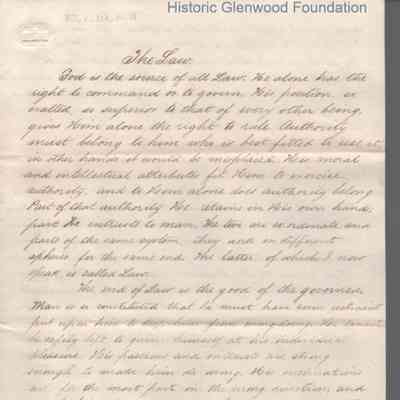 Historic Glenwood Foundation
The Law.
God is the source of all Law. He alone has the
right to command or to govern. His position is
exalted, is superior to that of every other being,
gives Him alone the right to rule. Authority
must belong to him who is best fitted to use it,
in other hands it would be misplaced. His moral
and intellectual attributes fit Him to exercise
authority, and to Him alone does authority belong.
Part of that authority He retains in His own hands,
part He entrusts to man. The two are co-ordinate and
parts of the same system. They act in different
spheres for the same end. The latter of which I now
speak is called Law.
The end of Law is the good of the governed.
Man is so constituted that he must have some restraint
put upon him to keep him from wrongdoing. He cannot
be safely left to govern himself at his individual
pleasure. His passions and are strong
enough to make him do wrong. His inclinations
are for the most part in the wrong direction, and